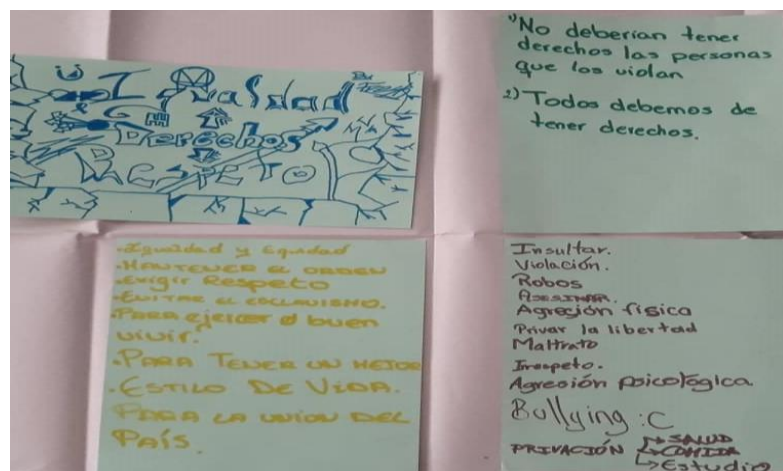 Igualdad
Derechos
RESPETO
1) No deberían tener
derechos las personas
que los violan
2) Todos debemos de
tener derechos.
• Igualdad y Equidad
• MANTENER EL ORDEN
• Exigir Respeto
• EVITAR EL ESCLAVISMO.
• PARA ejercer el buen
vivir.
• PARA TENER UN MEJOR
• ESTILO DE VIDA.
PARA LA UNIÓN DEL
PAÍS.
Insultar.
Violación.
Robos
ASESINAR.
Agreción física
Privar la libertad
Maltrato
Irrespeto.
Agresión psicológica.
Bullying :C
PRIVACIÓN → SALUD
→ COMIDA
→ Estudio